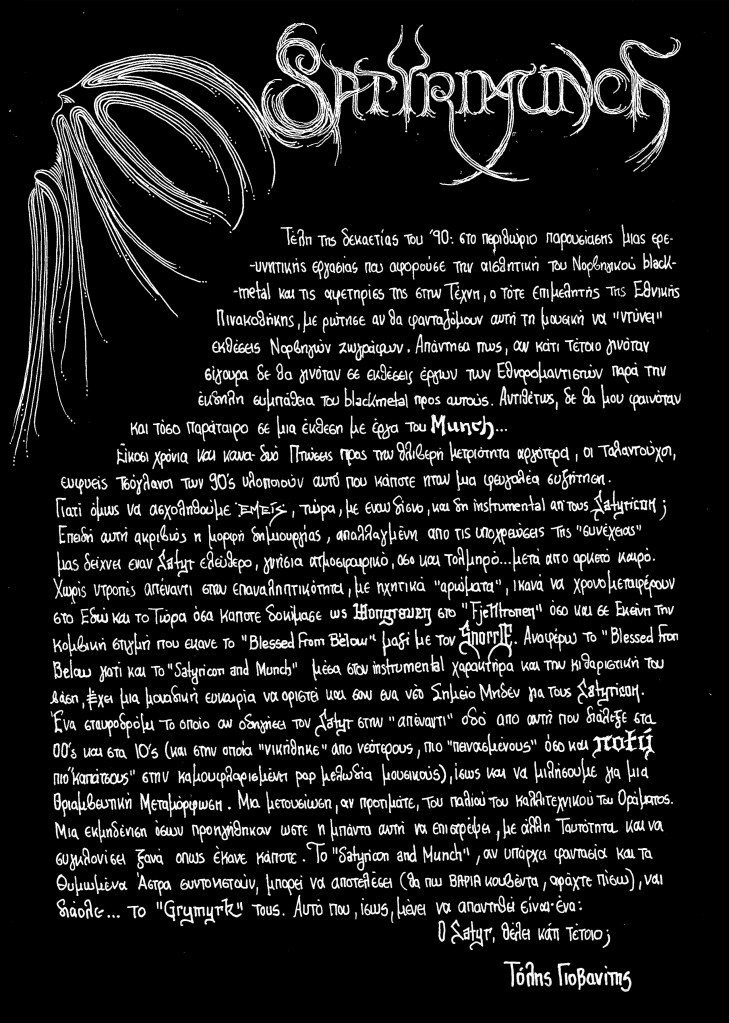 SATYRIMUNCH
Τέλη της δεκαετίας του '90: στο περιθώριο παρουσίασης μιας ερε-
-υνητικής εργασίας που αφορούσε την αισθητική του Νορβηγικού black-
-metal και τις αφετηρίες της στην Τέχνη, ο τότε Επιμελητής της Εθνικής
Πινακοθήκης, με ρώτησε αν θα φανταζόμουν αυτή τη μουσική να "ντύνει"
εκθέσεις Νορβηγών ζωγράφων. Απάντησα πως, αν κάτι τέτοιο γινόταν
σίγουρα δε θα γινόταν σε εκθέσεις έργων των Εθνορομαντιστών παρά την
έκδηλη συμπάθεια του blackmetal προς αυτούς. Αντιθέτως, δε θα μου φαινόταν
και τόσο παράταιρο σε μια έκθεση με έργα του Munch...
Είκοσι χρόνια και κανα-δυό Πτώσεις προς την θλιβερή μετριότητα αργότερα, οι Ταλαντούχοι,
ευφυείς Τσόγλανοι των 90's υλοποιούν αυτό που κάποτε ήταν μια φευγαλέα συζήτηση.
Γιατί όμως να ασχοληθούμε ΕΜΕΙΣ, τώρα, με έναν δίσκο, και δη instrumental απ'τους Satyricon;
Επειδή αυτή ακριβώς η μορφή δημιουργίας, απαλλαγμένη απο τις υποχρεώσεις της "συνέχειας"
μας δείχνει εναν Satyr ελεύθερο, γνήσια ατμοσφαιρικό, όσο και τολμηρό...μετά απο αρκετό καιρό.
Χωρίς ντροπές απέναντι στην επαναληπτικότητα, με ηχητικά "αρώματα", ικανά να χρονομεταφέρουν
στο Εδώ και το Τώρα όσα κάποτε δοκίμασε ως Wongraven στο "Fjelltronen" όσο και σε Εκείνη την
κομβική στιγμή που έκανε το "Blessed From Below" μαζί με τον Snorre. Αναφέρω το "Blessed From
Below γιατί και το "Satyricon and Munch" μέσα στον instrumental χαρακτήρα και την κιθαριστική του
βάση, Έχει μια μοναδική ευκαιρία να οριστεί και σαν ενα νέο Σημείο Μηδέν για τους Satyricon.
Ένα σταυροδρόμι το οποίο αν οδηγήσει τον Satyr στην "απέναντι" οδό απο αυτή που διάλεξε στα
00's και στα 10's (και στην οποία "νικήθηκε" απο νεότερους, πιο "πεινασμένους" όσο και πολύ
πιο "καπάτσους" στην καμουφλαρισμένη pop μελωδία μουσικούς), ίσως και να μιλήσουμε για μια
Θριαμβευτική Μεταμόρφωση. Μια μετουσίωση, αν προτιμάτε, του παλιού του καλλιτεχνικού του Οράματος.
Μια εκμηδένιση όσων προηγήθηκαν ώστε η μπάντα αυτή να επιστρέψει, με άλλη Ταυτότητα και να
συγκλονίσει ξανά οπως έκανε κάποτε. Το "Satyricon and Munch", αν υπάρχει φαντασία και τα
Θυμωμένα Άστρα συντονιστούν, μπορεί να αποτελέσει (θα πω ΒΑΡΙΑ κουβέντα, αράχτε πίσω), ναι
διάολε... το "Grymyrk" τους. Αυτό που, ίσως, μένει να απαντηθεί είναι ένα:
Ο Satyr, θέλει κάτι τέτοιο;
Τόλης Γιοβανίτης